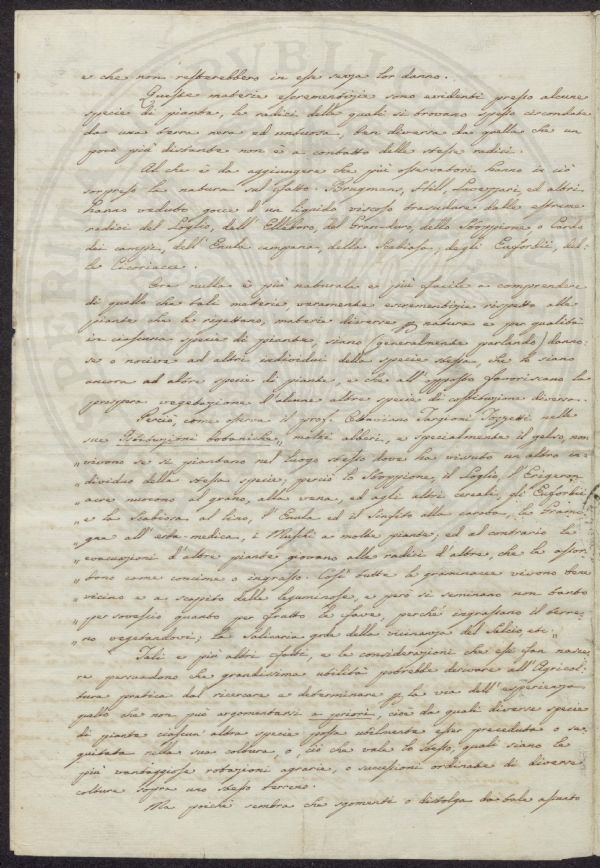 e che non resterebbero in esse senza lor danno.
Queste materie escrementizie sono evidenti presso alcune
specie di piante, le radici delle quali si trovano spesso circondate
da una terra nera ed untuosa, ben diversa da quella che un
poco più distante non è a contatto delle stesse radici.
Al che è da aggiungere che più osservatori hanno in ciò
sorpreso la natura sul fatto. Brugmans, ed altri
hanno veduto gocce d'un liquido viscoso trasudare dalle estreme
radici del Loglio, dell'Elleboro, del Gran-duro, dello Stoppione, o Cardo
dei campi, dell'Enula campana, della Scabiosa, degli Euforbii, del=
le Cicoriacee.
Ora nulla è più naturale e più facile a comprendere
di quello che tali materie, veramente escrementizie rispetto alle
piante che le rigettano, materie diverse p. natura e per qualità
in ciascuna specie di piante, siano (generalmente parlando) danno=
se o nocive ad altri individui della specie stessa, che lo siano
ancora ad altre specie di piante, e che all'opposto favoriscano la
prospera vegetazione d'alcune altre specie di costituzione diversa.
Perciò, come osserva il prof. Ottaviano Targioni Tozzetti nelle
sue Istituzioni botaniche „ molti alberi, e specialmente il gelso, non
„ vivono se si piantano nel luogo stesso dove ha vissuto un altro in=
„ dividuo della stessa specie; perciò lo Stoppione, il Loglio, l'Erigeron
„ acre nuocono al grano, alla vena, ed agli altri cereali, gli Euforbii
„ e la Scabiosa al lino, l'Enula ed il Sinfito alla carota, la Grami=
„ gna all'erba medica, i Muschi a molte piante; ed al contrario le
„ evacuazioni d'altre piante giovano alle radici d'altre, che le assor=
„ bono come concime o ingrasso. Così tutte le graminacee vivono bene
„ vicino e a scapito delle leguminose, e però si seminano non tanto
„ per sovescio quanto per frutto le fave, perchè ingrassano il terre=
„ no vegetandovi; la Salicaria gode della vicinanza del Salcio, etc „
Tali e più altri fatti, e le considerazioni che essi fan nasce=
re persuadono che grandissima utilità potrebbe derivare all'Agricol=
tura pratica dal ricercare e determinare p. la via dell'esperienza
quello che non può argomentarsi a priori, cioè da quali diverse specie
di piante ciascun'altra specie possa utilmente esser preceduta o se=
guitata nella sua coltura, o, ciò che vale lo stesso, quali siano le
più vantaggiose rotazioni agrarie, o successioni ordinate di diverse
colture sopra uno stesso terreno.
Ma poichè sembra che sgomenti o distolga da tale assunto